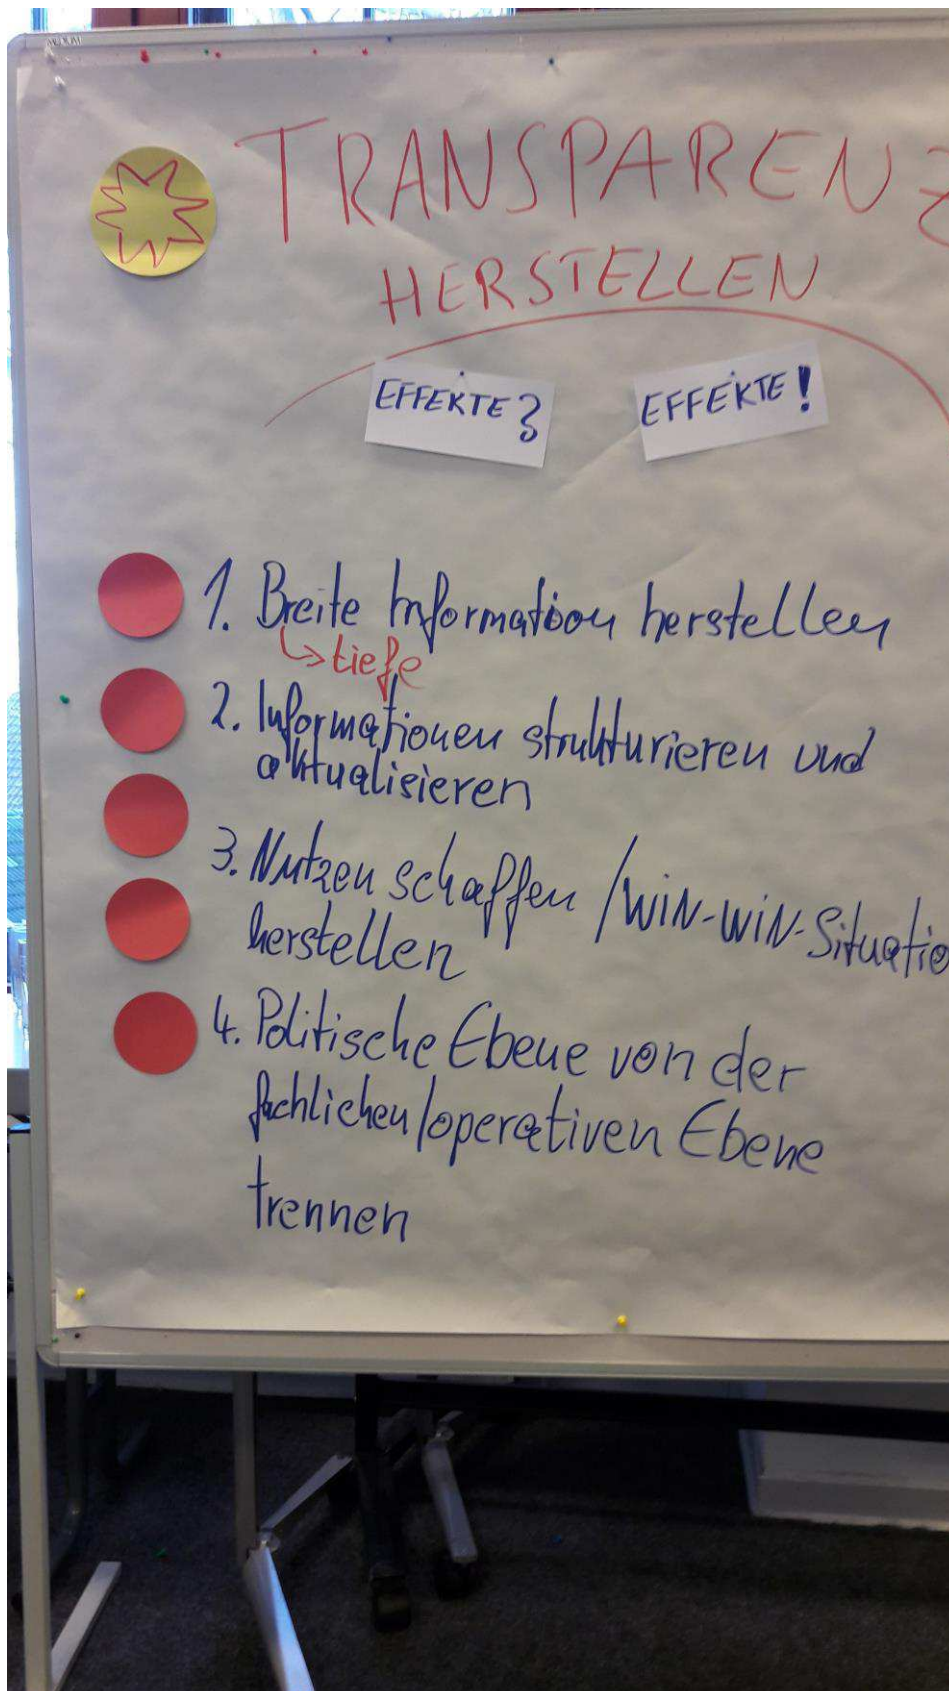 TRANSPARENZ
HERSTELLEN
EFFEKTE?
EFFEKTE!
1. Breite Information herstellen
↳ tiefe
2. Informationen strukturieren und
aktualisieren
3. Nutzen schaffen / WIN-WIN-Situatio
herstellen
4. Politische Ebene von der
fachlichen/operativen Ebene
trennen